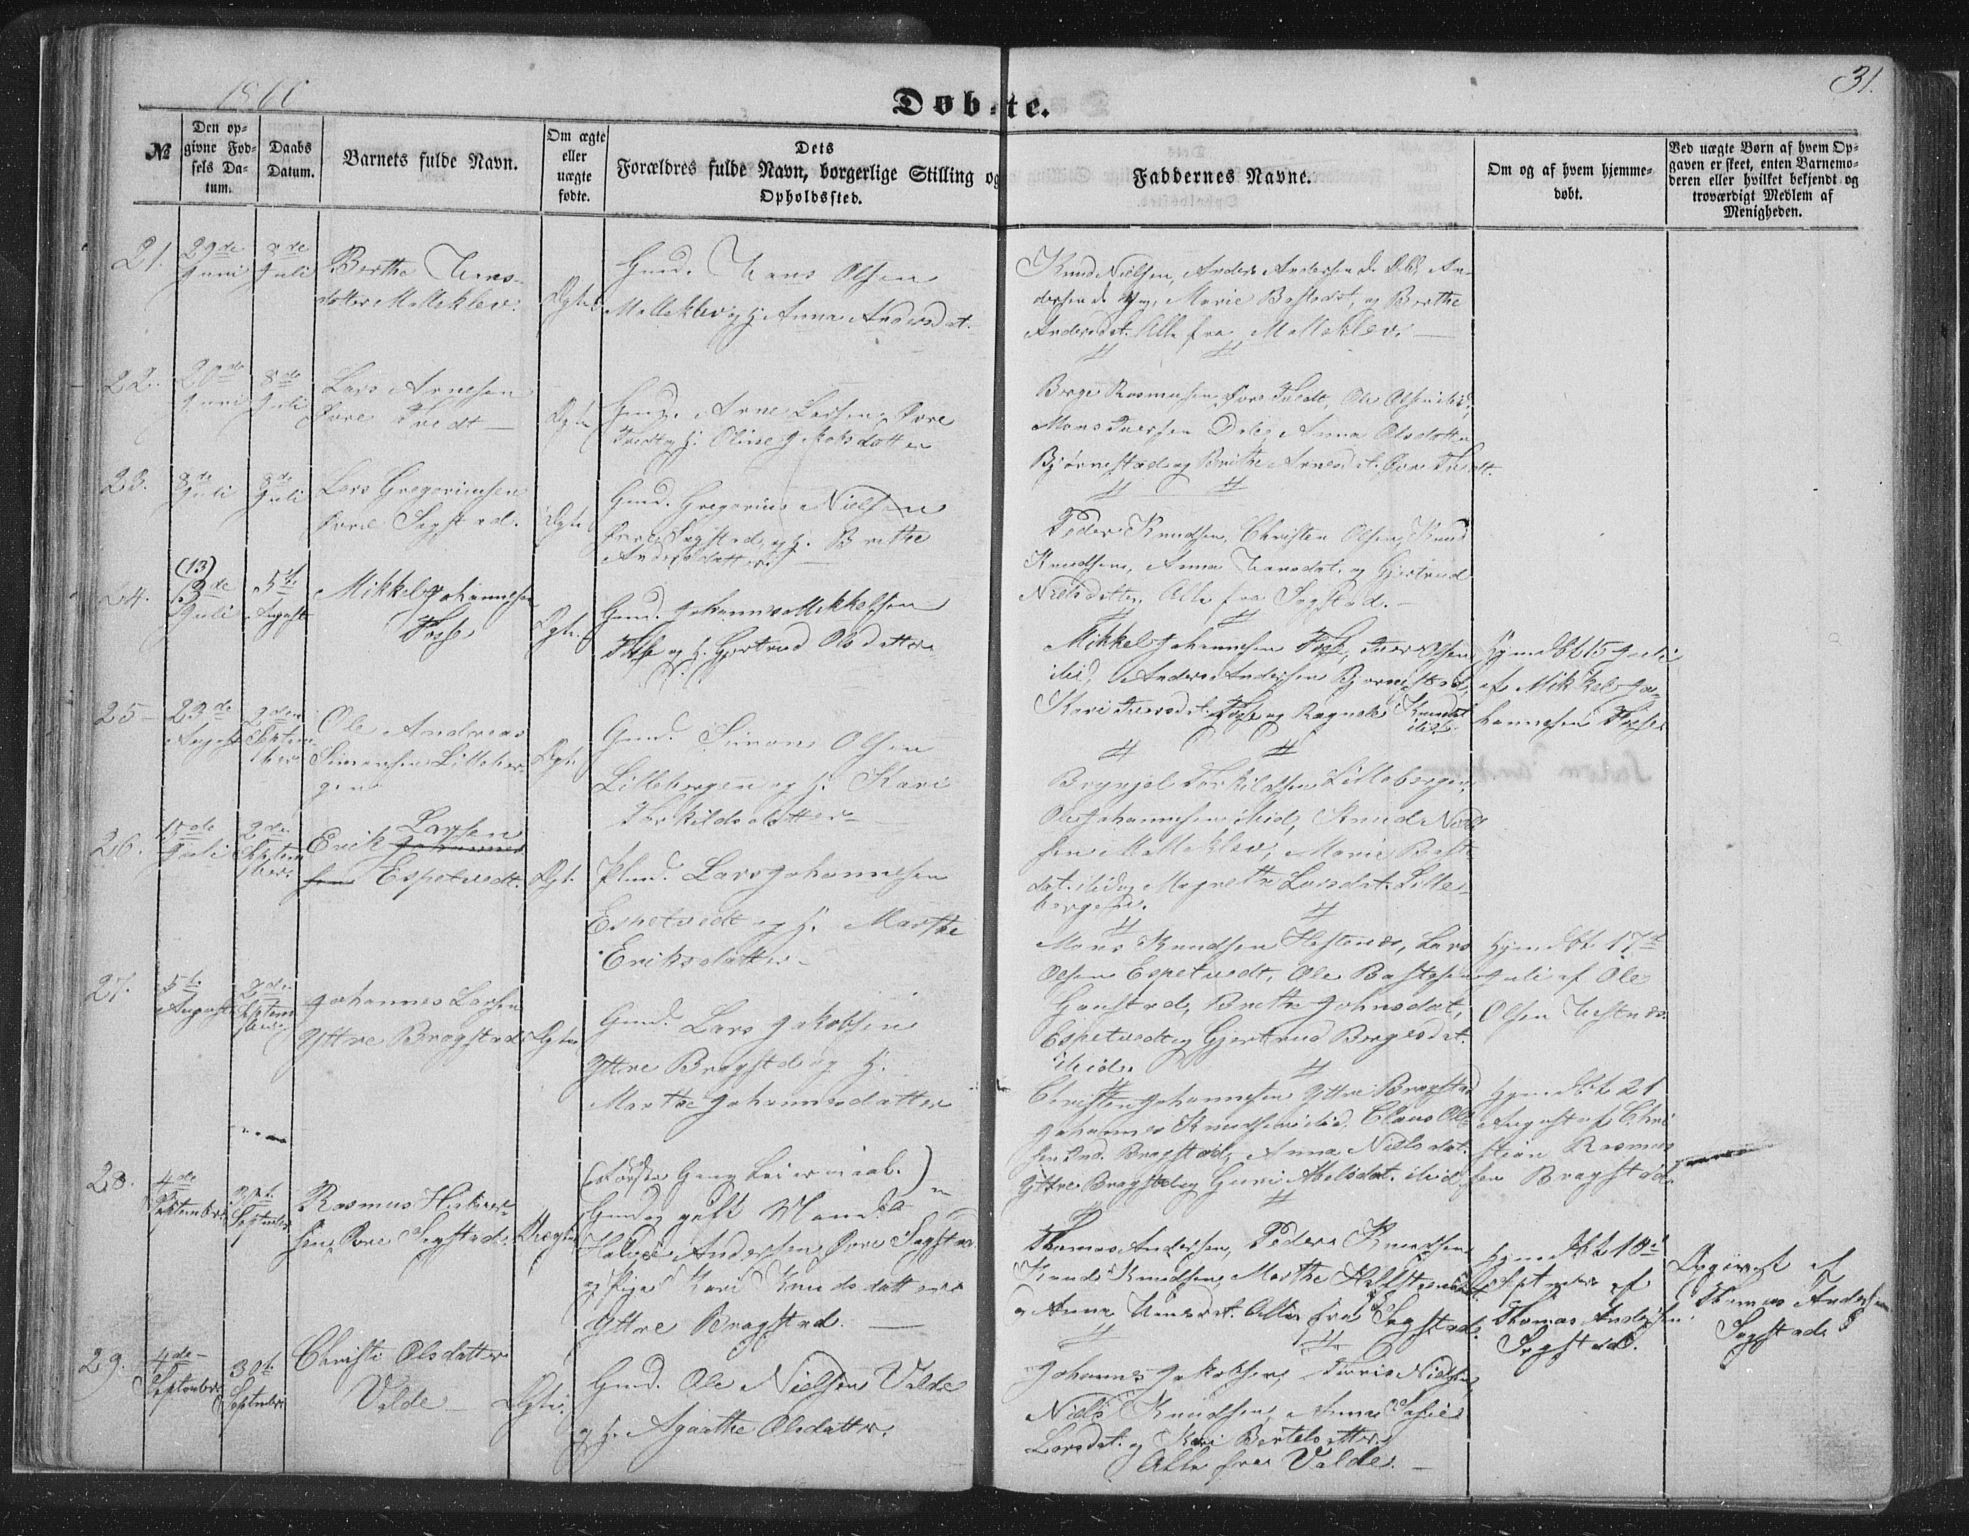 1860
Døbte.
31.
№
Den op-
givne Fød-
sels Da-
tum.
Daabs
Datum.
Barnets fulde Navn.
Om ægte
eller
uægte
fødte.
Dets
Forældres fulde Navn, borgerlige Stilling og
Opholdssted.
Faddernes Navne.
Om og af hvem hjemme-
døbt.
Ved uægte Børn af hvem Op-
gaven er skeet, enten Barnemo-
deren eller hvilket bekjendt og
troværdigt Medlem af
Menigheden.
21.
29de
Juni
8de
Juli
Berthe Hans-
datter Malleklev.
Ægte
Gmd. Hans Olsen
Malleklev og h. Anna Andersdat.
Knud Nielsen, Anders Andersen
dersen Marie Bastsdat. og Berthe
Andersdat. Alle fra Malleklev.
22.
20de
Juni
8de
Juli
Lars Arnesen
Øvre Tvedt
Ægte
Gmd. Arne Larsen Øvre
Tvedt og h. Oline Jakobsdatter
Berge Rasmussen Øvre Tvedt, Ole Olsen ibid,
Mons Iversen Anna Olsdatter
Bjørnestad og Brithe Arnesdat. Øvre Tvedt.
23.
8de
Juli
8de
Juli
Lars Gregoriussen
Øvre Segstad.
Ægte
Gmd. Gregorius Nielsen
Øvre Segstad og h. Brithe
Andersdatter
Peder Knudsen, Christen Olsen, Knud
Knudsen, Anna Hansdat. og Gjertrud
Nielsdatter Alle fra Segstad.
24.
(13)
13de
Juli
5te
August
Mikkel Johannesen
Fosse
Ægte
Gmd. Johannes Mikkelsen
Fosse og h. Gjertrud Olsdatter
Mikkel Johannesen Fosse, Iver Olsen
ibid, Anders Andersen Bjørnestad,
Kari Iversdat. Fosse og Ragnilde Knudsd.
ibid.
Hjmdbt 15 Juli
af Mikkel Jo-
hannesen Fosse
25
23de
August
2den
Septem-
ber
Ole Andreas
Simonsen Lilleber-
gen
Ægte
Gmd. Simon Olsen
Lillebergen og h. Kari
Torkildsdatter
Brynjel Torkildsen Lillebergen,
Ole Johannesen ibid, Knud Niel-
sen Malleklev, Marie Bast-
dat. ibid og Magrethe Larsdat. Lille-
bergen.
26.
15de
Juli
2den
Septem-
ber.
Larsen
Erik Johannes-
sen Espetvedt.
Ægte
Plmd. Lars Johannesen
Espetvedt og h. Marthe
Eriksdatter
Mons Knudsen Hestenes, Lars
Olsen Espetvedt, Ole Bastesen
Gaustad, Brethe Johnsdat,
Espetvedt og Gjertrud Bergesdat.
ibid.
Hjmdbt. 17de
Juli af Ole
Olsen Hestnes.
27.
5te
August
2den
Septem-
ber
Johannes Larsen
Yttre Bragstad
Ægte
Gmd. Lars Jakobsen
Yttre Bragstad og h.
Marthe Johannesdatter
Christen Johannesen Yttre Bragstad
Johannes Knudsen ibid, Claus Ol-
sen Ind. Bragstad, Anna Nielsdat.
Yttre Bragstad og Guri Abelsdat. ibid
Hjmdbt 21
August af Chri-
stian Rasmus-
sen Bragstad.
28.
4de
September
30te
September
Rasmus Halvor-
sen, Øvre Segstad.
Uægte
(Første Gang Leiermaal.)
Gmd og gift Mand
Halvor Andersen Øvre Segstad
og Pige Kari Knudsdatter
Yttre Bragstad.
Thomas Andersen, Peder Knudsen
Knud Knudsen, Marthe
og Anna Alle fra Segstad.
Hjmdbt 18de
Septmbr af
Thomas Andersen
Segstad.
Opgivet af
Thomas Andersen
Segstad.
29.
4de
September
30te
September
Christi Olsdatter
Valde
Ægte.
Gmd. Ole Nielsen Valde
og h. Agaathe Olsdatter.
Johannes Jakobsen, Nielsen
Niels Knudsen, Anna
Larsdat. og Kari Bertelsdatter
Alle fra Valde.